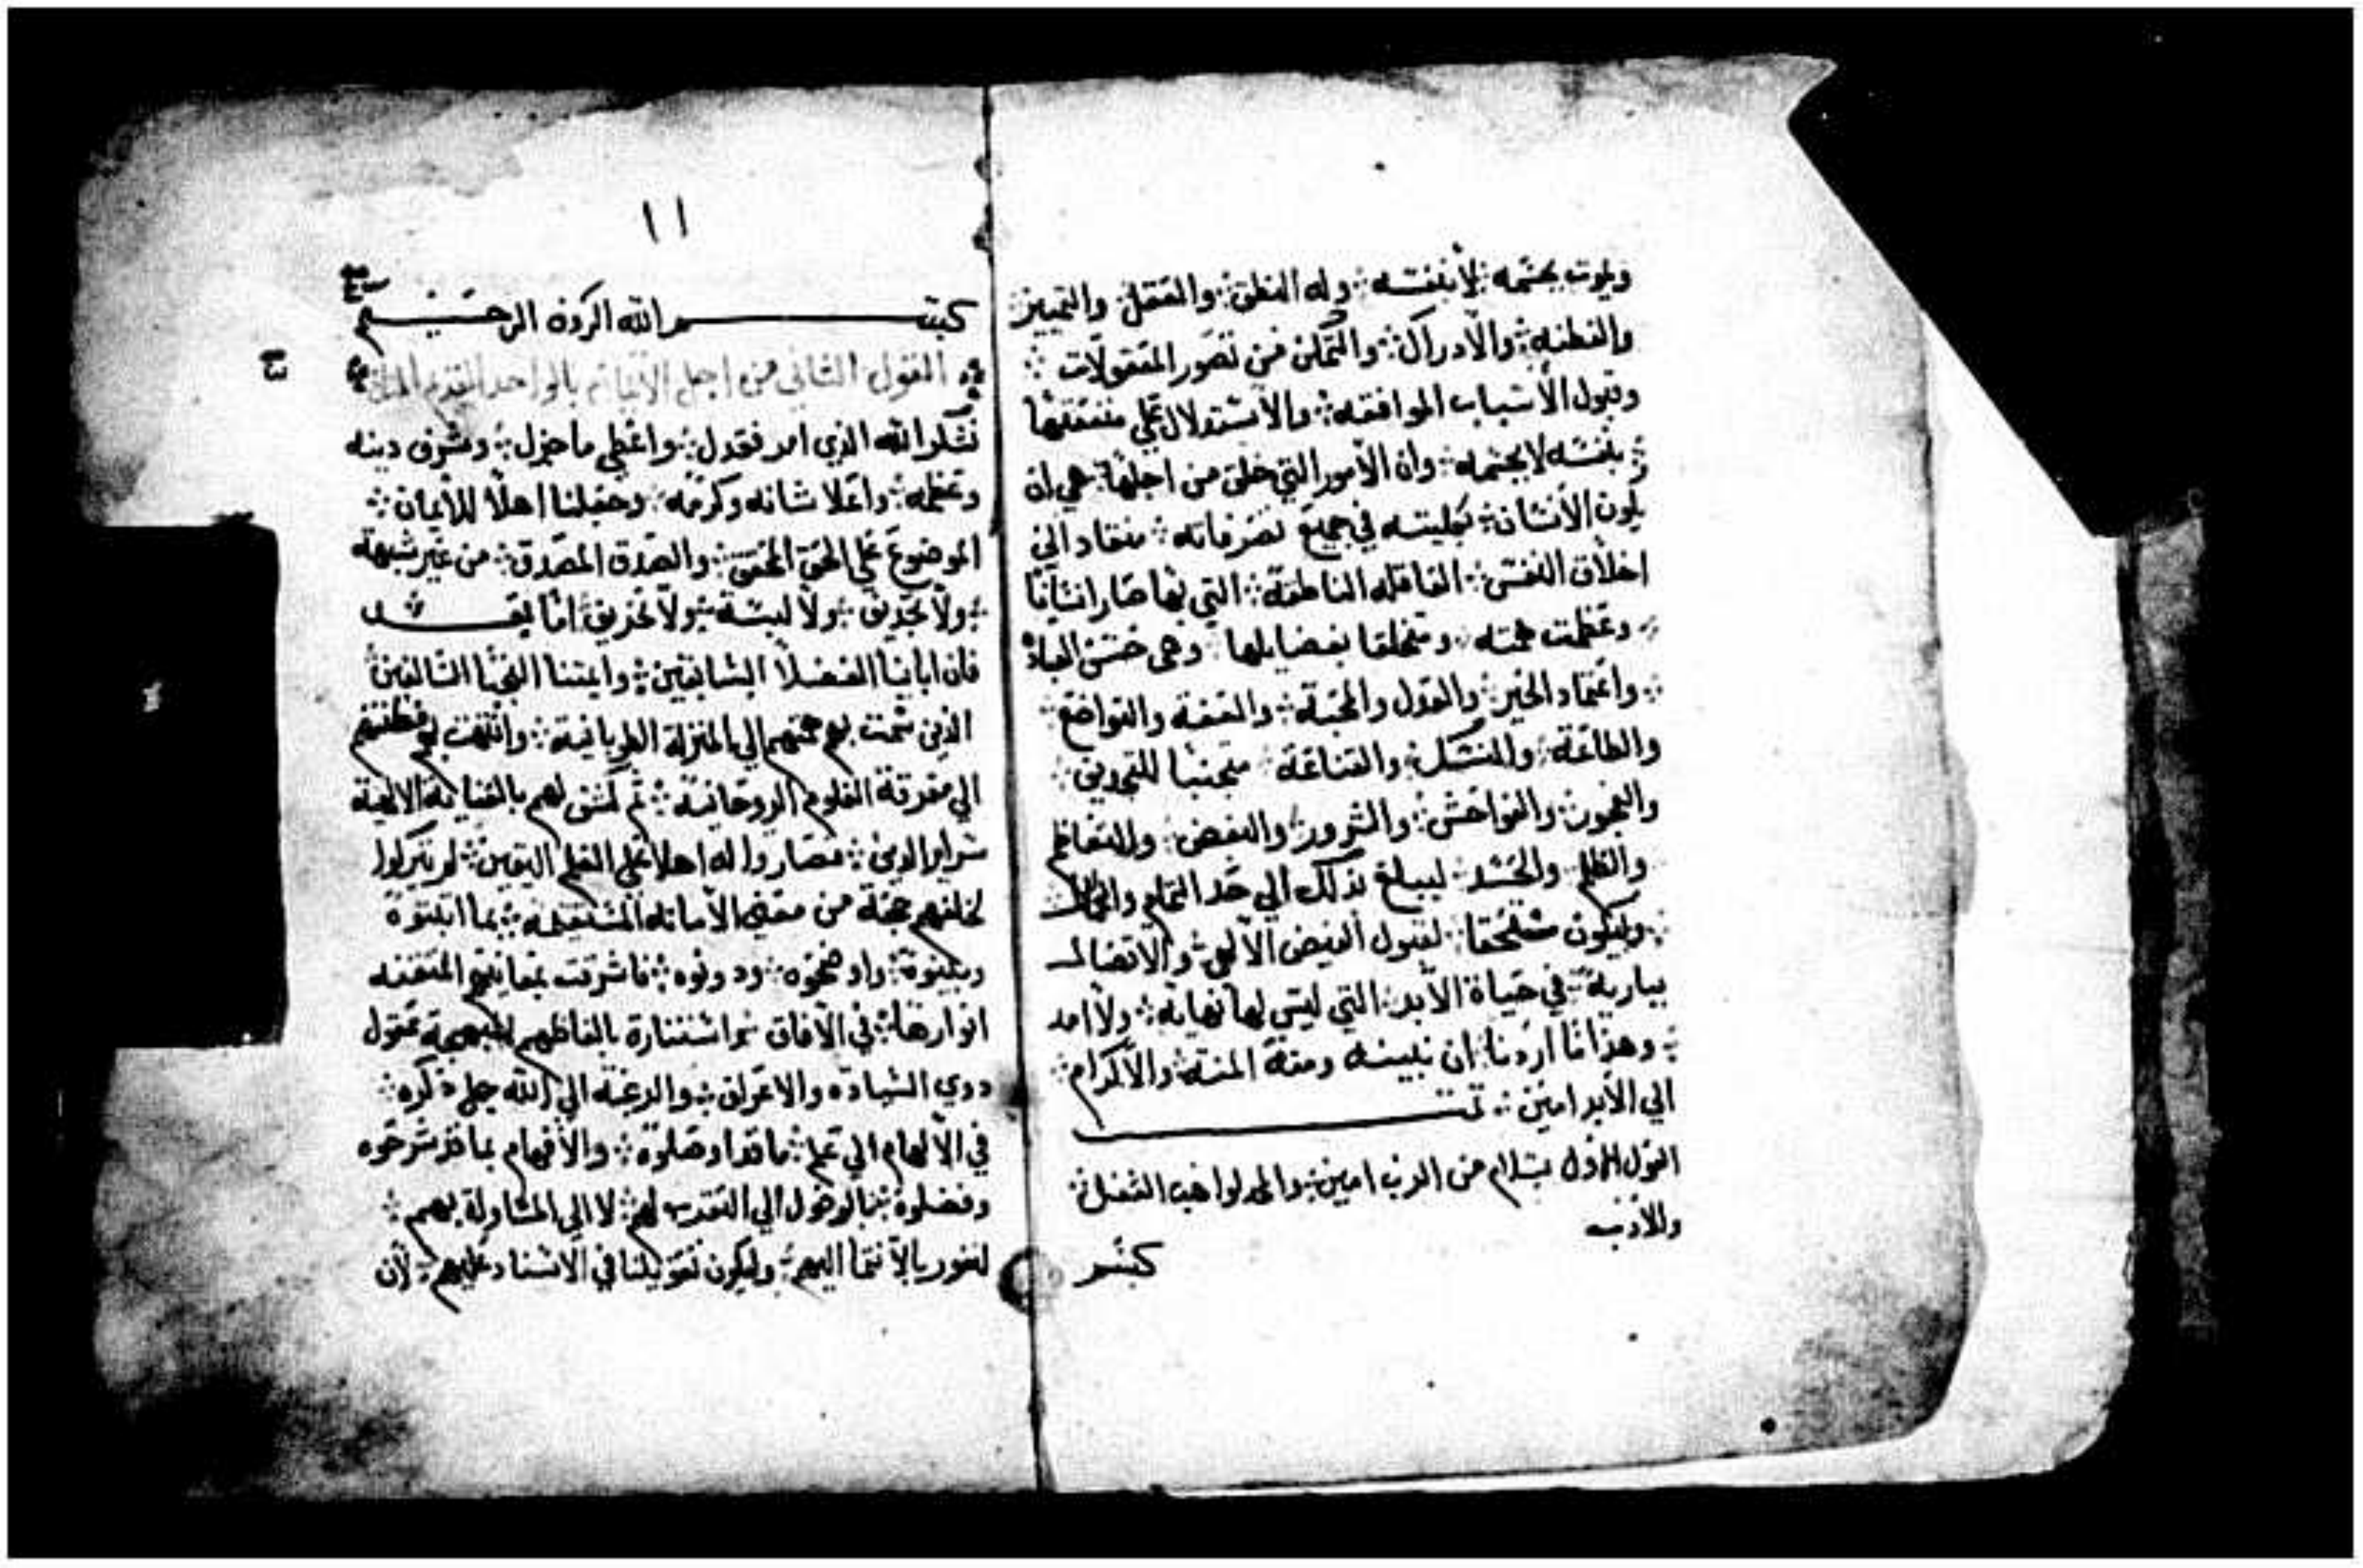 ويموت بجسمه لا بنفسه ∴ وله النطق ∴ والعقل ∴ والتمييز
والفطنه ∴ والادراك ∴ والتمكن من تصور المعقولات ∴
وقبول الأسباب الموافقه ∴ والاستدلال علي منفعتها
∴ بنفسه لا بجسمه ∴ وان الأمور التي خلق من اجلها هي ان
يكون الأنسان ∴ بكليته في جميع تصرفاته ∴ منقاد الي
اخلاق النفس ∴ العاقله الناطقة ∴ التي بها صار انسانا
∴ وعظمت همته ∴ ومتخلقا بفضايلها ∴ وهي حسن العباده
∴ واعتماد الخير ∴ والعدل والمحبة ∴ والعفة والتواضع ∴
والطاعة ∴ والنسك ∴ والقناعة ∴ متجنبا للتجديف ∴
والفجور ∴ والفواحش ∴ والشرور ∴ والبغض ∴ والتعاظم
والظلم والحسد ∴ ليبلغ بذلك الي حد التمام والكمال
∴ وليكون مستحقا ∴ لقبول الفيض الآلهي ∴ والاتصال
بباريه ∴ في حياة الأبد ∴ التي ليس لها نهايه ∴ ولا امد
∴ وهذا ما اردنا ∴ ان نبينه ومنه المنة ∴ والأكرام ∴
الي الأبد امين ∴ تمت
القول الاول بسلام من الرب امين ∴ والحمد لواهب العقل ∴
والأدب
كبسم
١١
كبسم الله الكروة الرحيم
∴ القول الثاني من اجل الأيمان بالواحد
نشكر الله الذي امر فعدل ∴ واعطي ما جزل ∴ وشرف دينه
وعظمه ∴ واعلا شانه وكرمه ∴ وجعلنا اهلا للأيمان ∴
الموضوع علي الحق المحقق ∴ والصدق المصدق ∴ من غير شبهة
∴ ولا تجديف ∴ ولا لبسة ∴ ولا تحريف ∴ اما بعد ∴
فان ابائنا الفضلا السابقين ∴ وايمتنا النجبا السالفين
الذين سمت بهم همتهم الي المنزلة الطوبانية ∴ وانتهت بهم فطنتهم
الي معرفة العلوم الروحانية ∴ ثم كشف لهم بالعناية الالهية
سراير الدين ∴ فصاروا له اهلا علي العلم اليقين ∴ لم يتركوا
لخلفهم حجة من معني الأمانة المستقيمه ∴ بما اثبتوه
وبينوه ∴ واوضحوه ∴ ودونوه ∴ فاشرقت بمعانيهم المتقنه
انوارها ∴ في الآفاق ∴ واستنارة بالفاظهم المبهجة عقول
دوي السياده والاعراق ∴ والرغبة الي الله جل ذكره ∴
في الآلهام الي علم ∴ ما قد اوصلوه ∴ والأفهام بما قد شرحوه
وفضلوه ∴ لا الي المساولة بهم ∴
لنفوز بالأنتما اليهم ∴ وليكون تعويلنا في الاسناد عليهم ∴ لأن